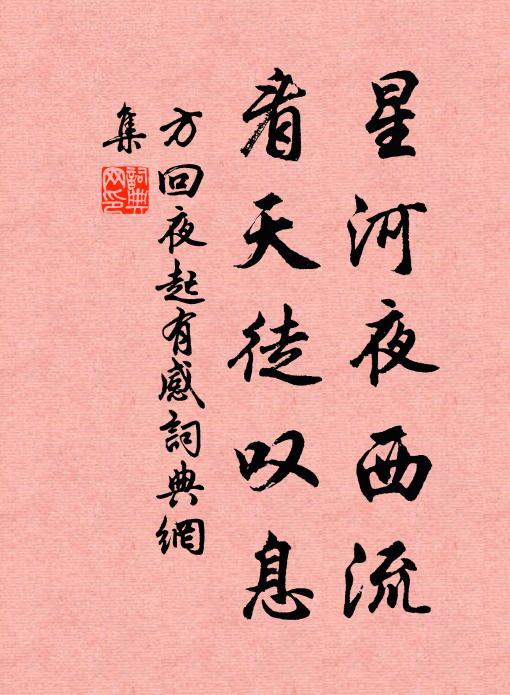 星河夜西流
看天徒叹息
方回夜起有感詞典網
集
詞典
网印